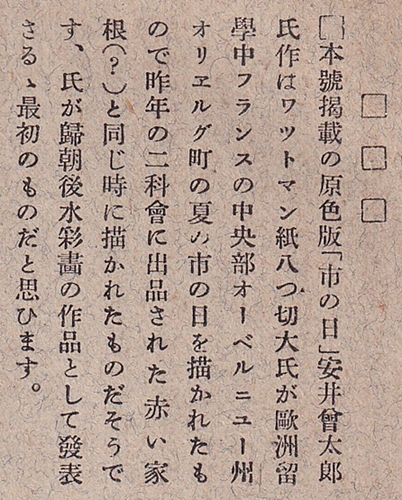 □□□
□本號揭載の原色版「市の日」安井曾太郎
氏作はワットマン紙八つ切大氏が歐洲留
學中フランスの中央部オーベルニュー州
オリヱルグ町の夏の市の日を描かれたも
ので昨年の二科會に出品された赤い家
根(?)と同じ時に描かれたものだそうで
す、氏が歸朝後水彩畫の作品として發表
さるゝ最初のものだと思ひます。